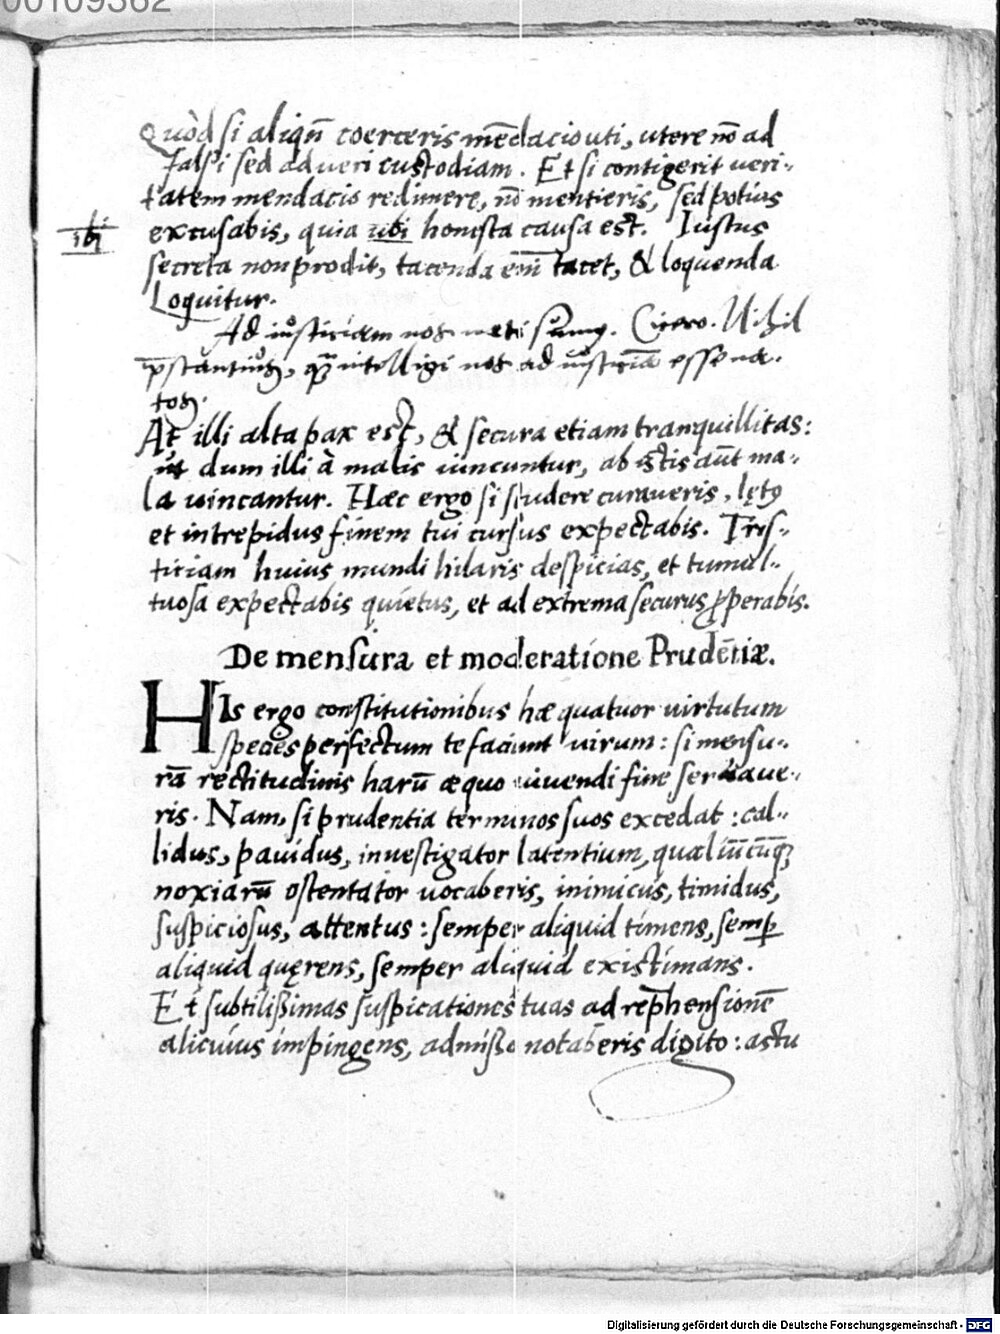 00109362
Quòd si aliqñ coerceris mēdacio uti, utere nō ad
falsi sed ad veri custodiam. Et si contigerit veri-
tatem mendacio redimere, nō mentieris, sed potius
ibi
excusabis, quia ubi honesta causa est. Iustus
secreta non prodit, tacenda eñi tacet, & loquenda
Loquitur.
Ad iusticiam nos nati sumus. Cicero. Nihil
p̄stantius, quā intelligi nos ad iusticiā esse na-
tos.
At illi alta pax est, & secura etiam tranquillitas:
ut dum illi à malis uincuntur, ab istis aūt ma-
la uincantur. Hæc ergo si studere curaveris, lętus
et intrepidus finem tui cursus expectabis. Tris-
ticiam huius mundi hilaris despicias, et tumul-
tuosa expectabis quietus, et ad extrema securus ꝓperabis.
De mensura et moderatione Prudētiæ.
HIs ergo constitutionibus hæ quatuor uirtutum
species perfectum te faciunt virum: si mensu-
rā rectitudinis harū æquo uiuendi fine seruaue-
ris. Nam, si prudentia terminos suos excedat: cal-
lidus, pauidus, inuestigator latentium, qualiūcūq;
noxiarū ostentator uocaberis, inimicus, timidus,
suspiciosus, attentus: semper aliquid timens, semꝑ
aliquid quęrens, semper aliquid existimans.
Et subtilißimas suspicationes tuas ad rep̄hensionē
alicuius impingens, admisso notaberis digito: astu
Digitalisierung gefördert durch die Deutsche Forschungsgemeinschaft - DFG